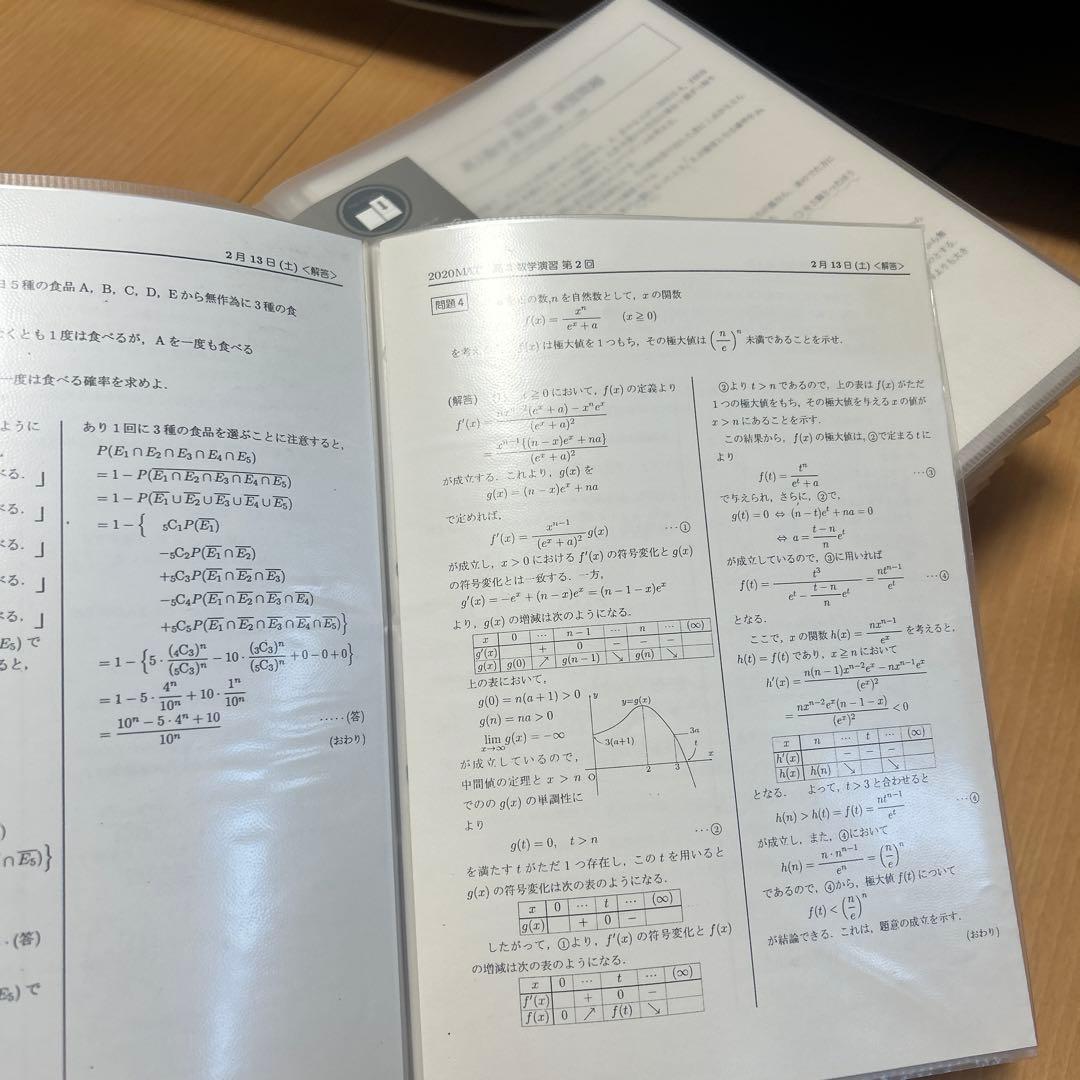 2月13日(土)<解答>
日5種の食品A, B, C, D, Eから無作為に3種の食
くとも1度は食べるが, Aを一度も食べる
一度は食べる確率を求めよ.
ように
べる. 」
べる. 」
べる. 」
べる. 」
べる. 」
E₅) で
ると,
∩E̅₅)}
‥(答)
E₅) で
あり1回に3種の食品を選ぶことに注意すると,
P(E₁∩E₂∩E₃∩E₄∩E₅)
=1−P(\overline{E₁∩E₂∩E₃∩E₄∩E₅})
=1−P(E̅₁∪E̅₂∪E̅₃∪E̅₄∪E̅₅)
=1−{ ₅C₁P(E̅₁)
−₅C₂P(E̅₁∩E̅₂)
+₅C₃P(E̅₁∩E̅₂∩E̅₃)
−₅C₄P(E̅₁∩E̅₂∩E̅₃∩E̅₄)
+₅C₅P(E̅₁∩E̅₂∩E̅₃∩E̅₄∩E̅₅)}
=1−{5·(₄C₃)ⁿ/(₅C₃)ⁿ−10·(₃C₃)ⁿ/(₅C₃)ⁿ+0−0+0}
=1−5·4ⁿ/10ⁿ+10·1ⁿ/10ⁿ
=(10ⁿ−5·4ⁿ+10)/10ⁿ ‥‥‥(答)
(おわり)
2020MAT 数学演習 第2回 2月13日(土)<解答>
問題4 の数,nを自然数として, xの関数
f(x)=xⁿ/(eˣ+a) (x≧0)
を考え f(x)は極大値を1つもち, その極大値は(n/e)ⁿ未満であることを示せ.
(解答) ≧0において, f(x)の定義より
f′(x)=(nxⁿ⁻¹(eˣ+a)−xⁿeˣ)/(eˣ+a)²
=xⁿ⁻¹{(n−x)eˣ+na}/(eˣ+a)²
が成立する. これより, g(x)を
g(x)=(n−x)eˣ+na
で定めれば,
f′(x)=xⁿ⁻¹/(eˣ+a)² g(x) …①
が成立し, x>0におけるf′(x)の符号変化とg(x)
の符号変化とは一致する. 一方,
g′(x)=−eˣ+(n−x)eˣ=(n−1−x)eˣ
より, g(x)の増減は次のようになる.
x 0 … n−1 … n … (∞)
g′(x) + 0 − − −
g(x) g(0) ↗ g(n−1) ↘ g(n) ↘
上の表において,
g(0)=n(a+1)>0
g(n)=na>0
lim_{x→∞} g(x)=−∞
が成立しているので,
中間値の定理とx>n
でのg(x)の単調性に
より
y
y=g(x)
3(a+1)
3a
t
x
O 2 3
g(t)=0, t>n …②
を満たすtがただ1つ存在し, このtを用いると
g(x)の符号変化は次の表のようになる.
x 0 … t … (∞)
g(x) + 0 −
したがって, ①より, f′(x)の符号変化とf(x)
の増減は次の表のようになる.
x 0 … t … (∞)
f′(x) + 0 −
f(x) 0 ↗ f(t) ↘
②よりt>nであるので, 上の表はf(x)がただ
1つの極大値をもち, その極大値を与えるxの値が
x>nにあることを示す.
この結果から, f(x)の極大値は, ②で定まるtに
より
f(t)=tⁿ/(eᵗ+a) …③
で与えられ, さらに, ②で,
g(t)=0 ⇔ (n−t)eᵗ+na=0
⇔ a=(t−n)/n eᵗ
が成立しているので, ③に用いれば
f(t)=t³/(eᵗ−(t−n)/n eᵗ)=ntⁿ⁻¹/eᵗ …④
となる.
ここで, xの関数h(x)=nxⁿ⁻¹/eˣを考えると,
h(t)=f(t)であり, x≧nにおいて
h′(x)=(n(n−1)xⁿ⁻²eˣ−nxⁿ⁻¹eˣ)/(eˣ)²
=nxⁿ⁻²eˣ(n−1−x)/(eˣ)²<0
x n … t … (∞)
h′(x) − − −
h(x) h(n) ↘ ↘
となる. よって, t>3と合わせると
h(n)>h(t)=f(t)=ntⁿ⁻¹/eᵗ …④
が成立し, また, ④において
h(n)=n·nⁿ⁻¹/eⁿ=(n/e)ⁿ
であるので, ④から, 極大値f(t)について
f(t)<(n/e)ⁿ
が結論できる. これは, 題意の成立を示す.
(おわり)